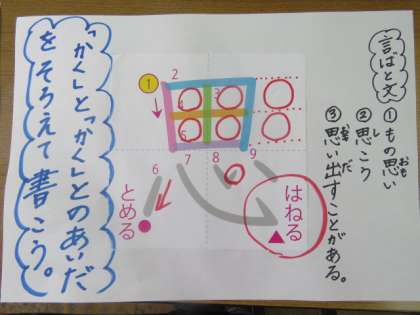 言ばと文
①もの思い
おも
②思こう
し
③思い出すことがある。
おも だ
1
2
3
4
5
6
7
8
9
はねる
とめる
「かく」と「かく」とのあいだ
をそろえて書こう。